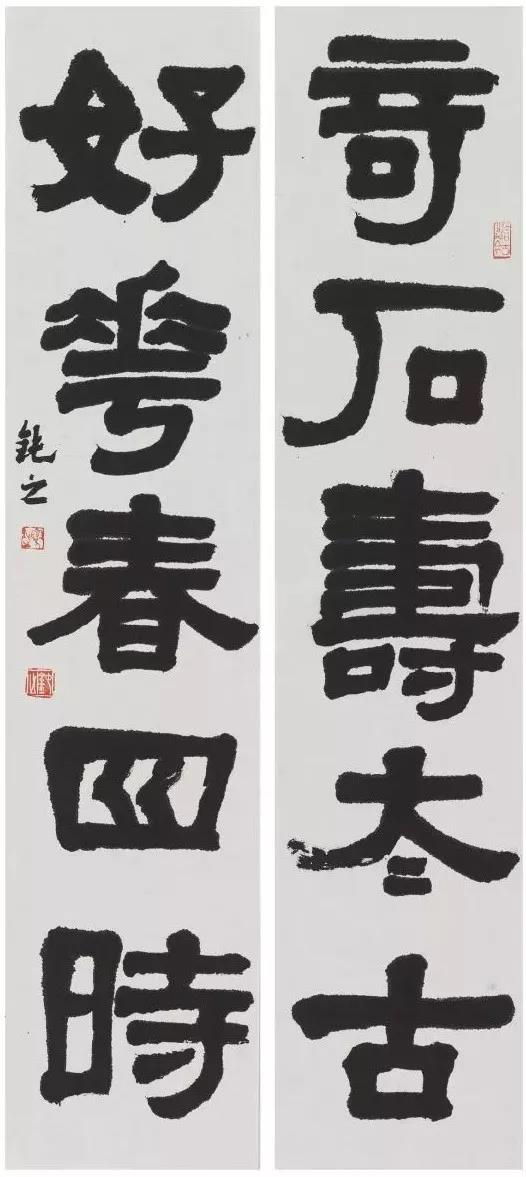 奇石壽太古
好華春四時
鈍之